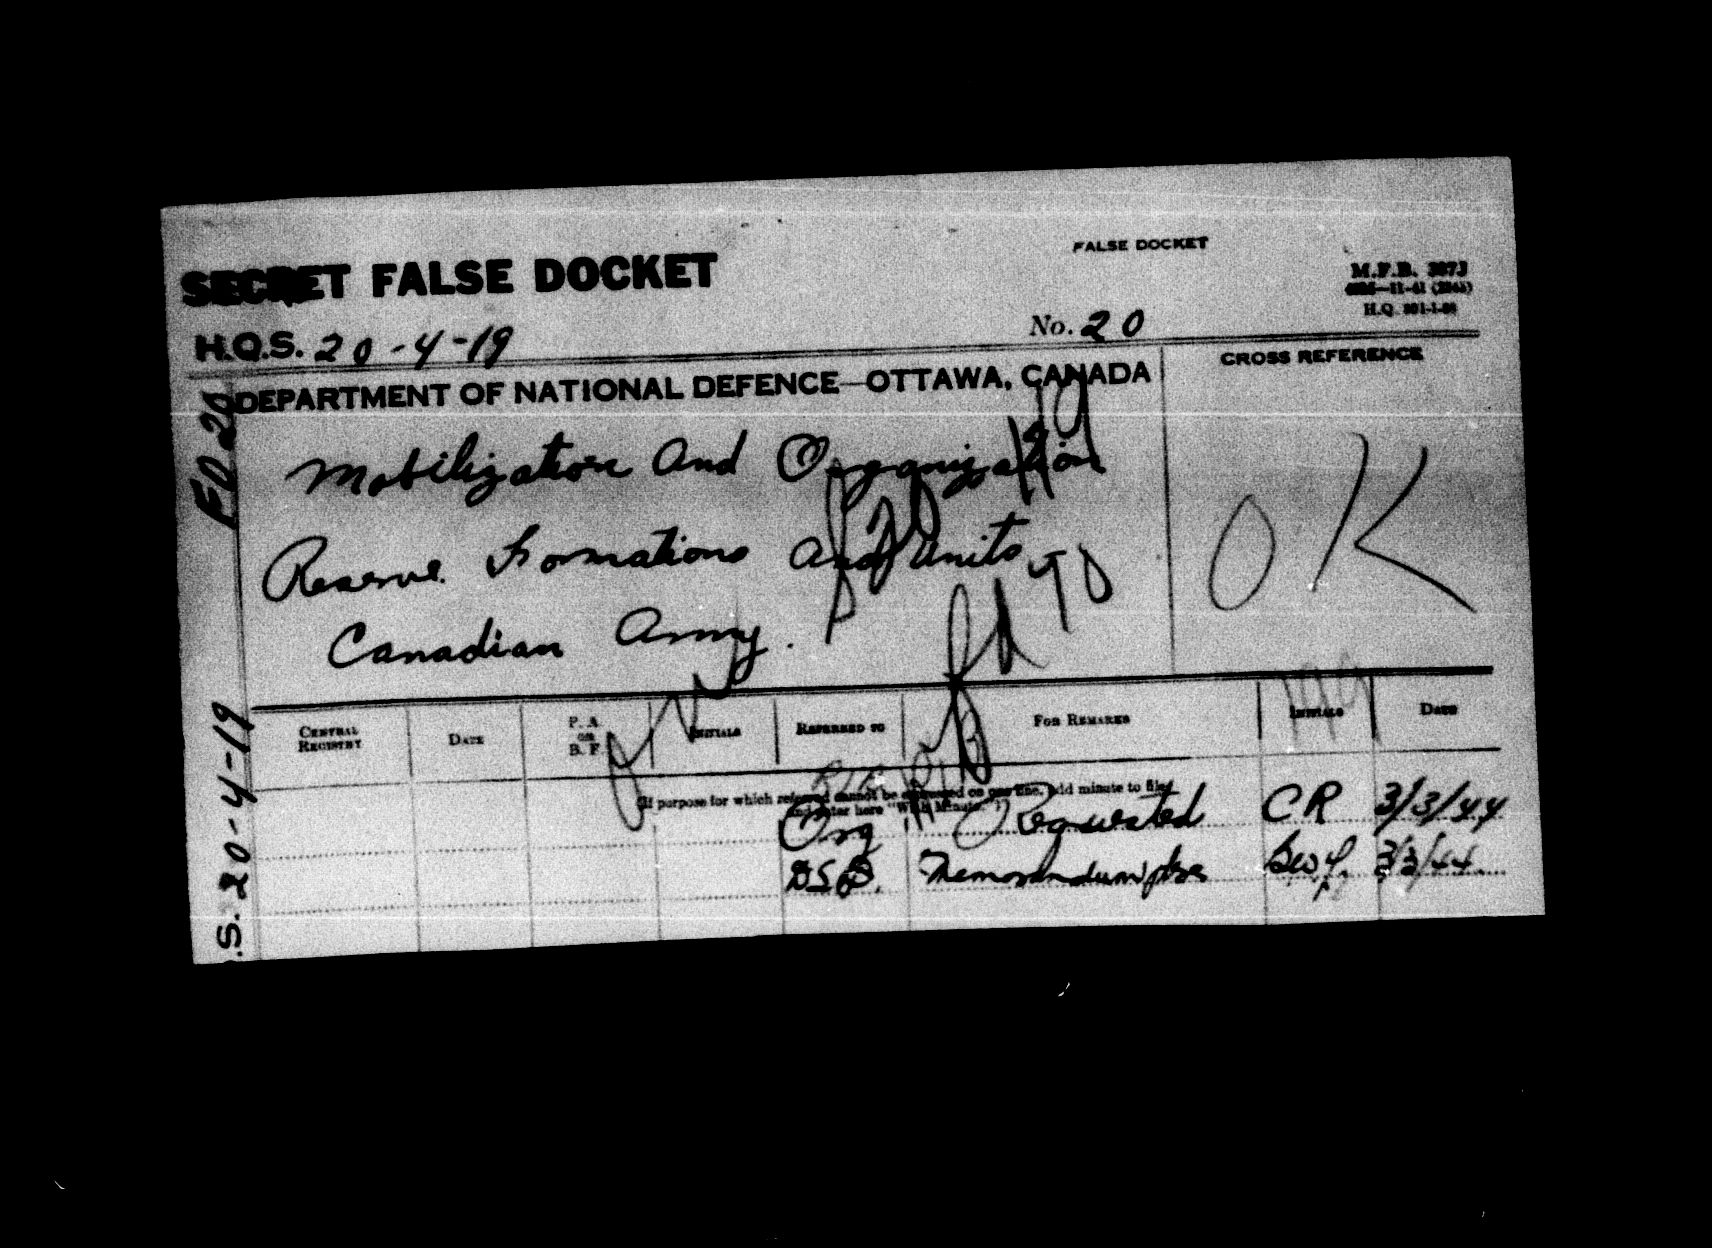 FALSE DOCKET
SECRET FALSE DOCKET
M.F.B.
H.Q.S. 20-4-19
No. 20
DEPARTMENT OF NATIONAL DEFENCE—OTTAWA, CANADA
CROSS REFERENCE
FD 20
Mobilization And Organization
Reserve Formations and Units
Canadian Army.
OK
CENTRAL REGISTRY
DATE
P. A. OR B. F.
INITIALS
REFERRED TO
FOR REMARKS
INITIALS
DATE
(If purpose for which referred cannot be expressed on one line, add minute to file
and enter here "With Minute".)
Org Requested CR 3/3/44
DSD. Memorandum pse 3/3/44
.S. 20-4-19